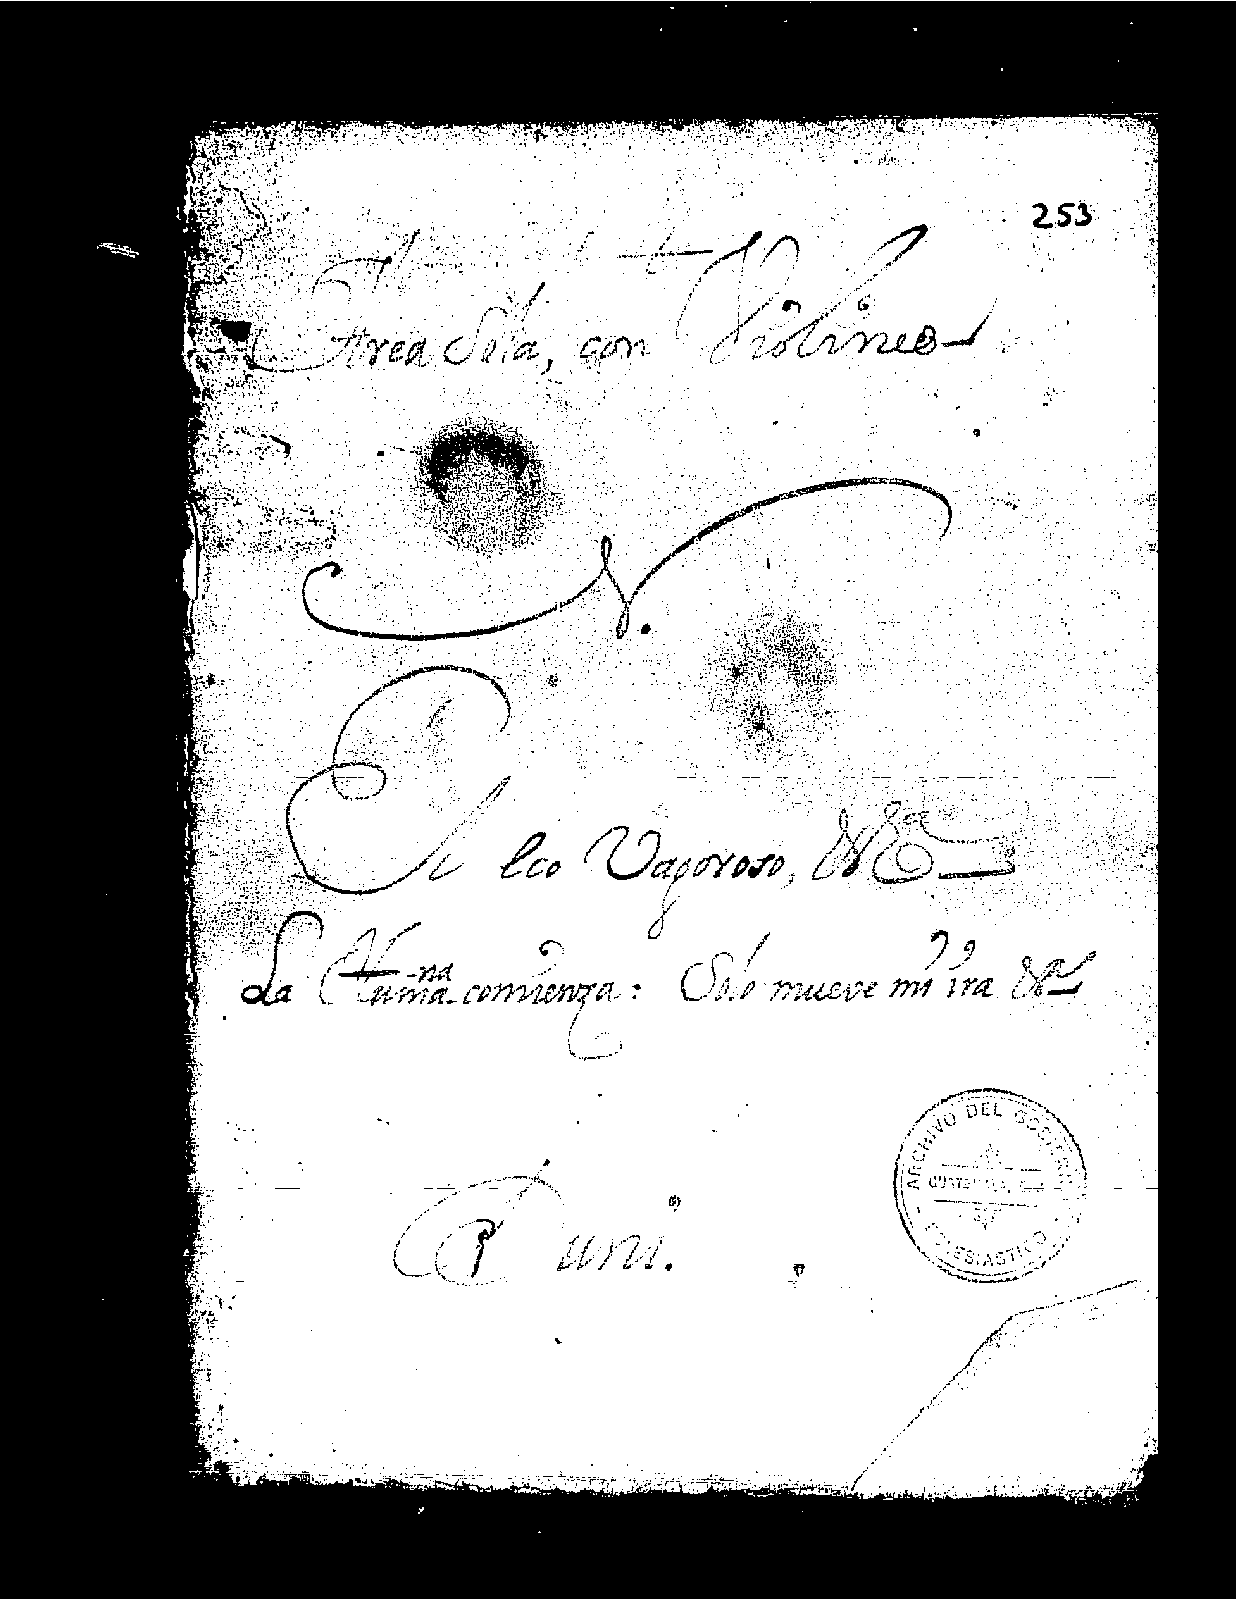 253
Area Sola, con Violines
Al Eco Vagoroso, &c.ª
La Humana comienza: Solo mueve mi ira &ª
Puni.
ARCHIVO DEL GOBIERNO
GUATEMALA, C. A.
ECLESIASTICO